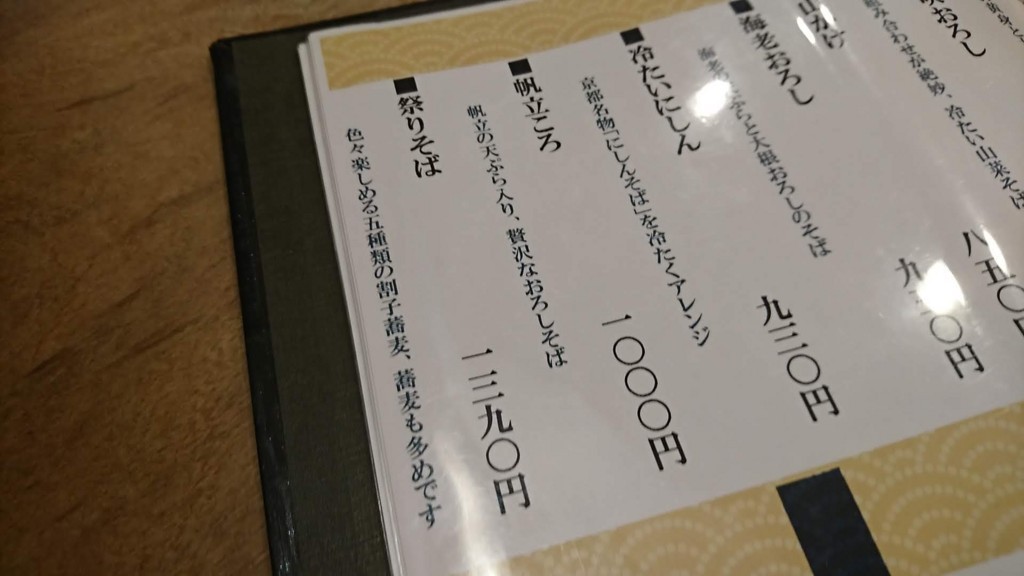 組み合わせが絶妙・冷たい山菜そば
山かけ
八五〇円
海老おろし
海老天ぷらと大根おろしのそば
冷たいにしん
京都名物「にしんそば」を冷たくアレンジ
九三〇円
帆立ころ
帆立の天ぷら入り、贅沢なおろしそば
一〇〇〇円
祭りそば
色々楽しめる五種類の割子蕎麦、蕎麦も多めです
一三九〇円